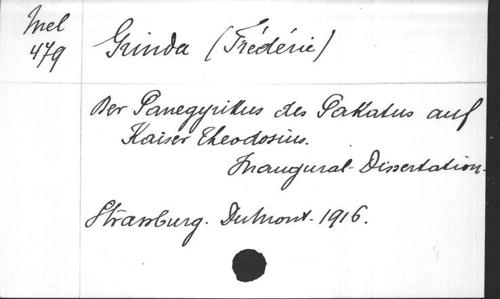 Mel
479
Grinda (Frédéric)
Der Panegyrikus des Pakatus auf
Kaiser Theodosius.
Inaugural-Dissertation.
Strassburg. Dumont. 1916.